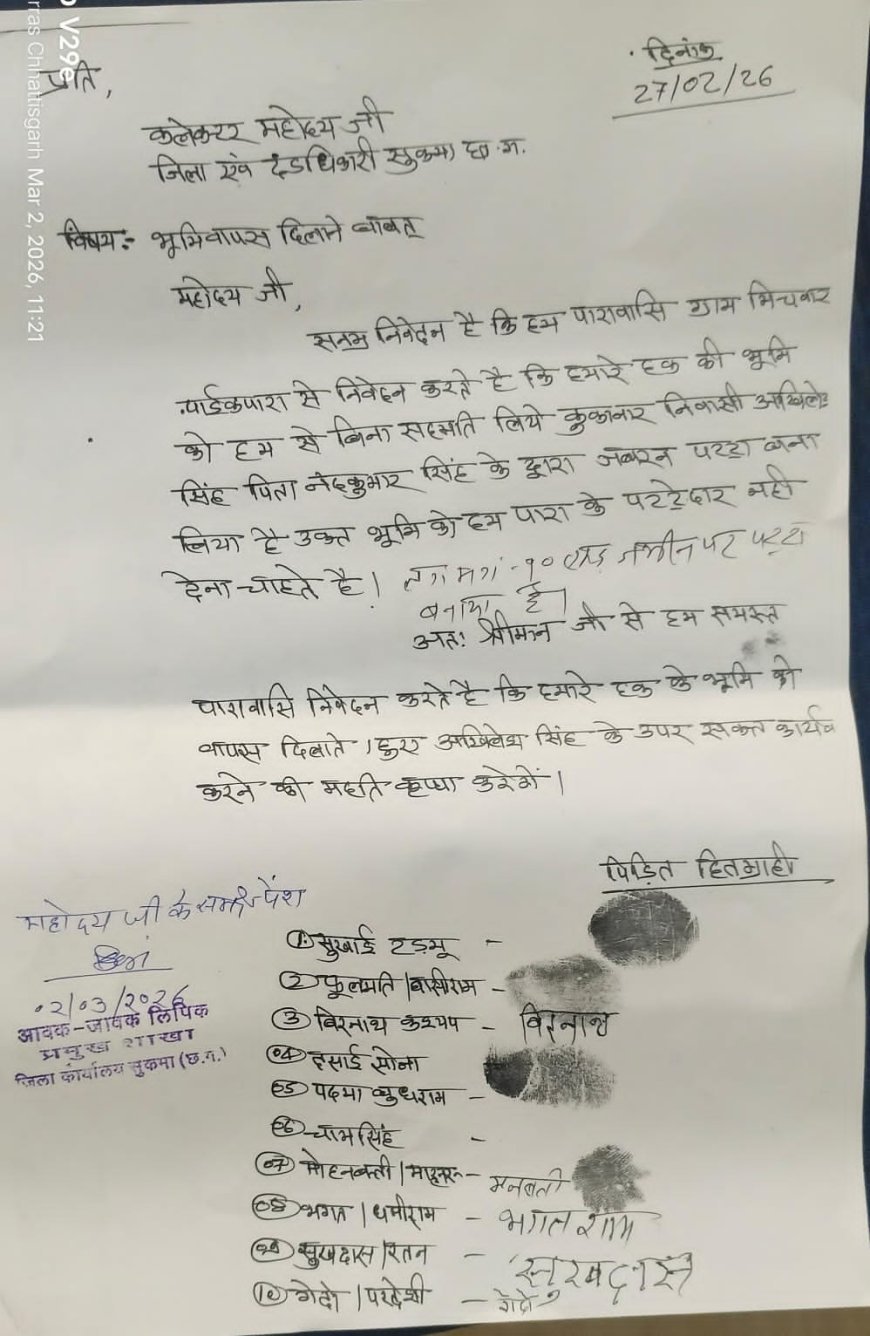 दिनांक
27/02/26
प्रति,
कलेक्टर महोदय जी
जिला एवं दंडाधिकारी सुकमा छ.ग.
विषय:- भूमिवापस दिलाने बाबत्
महोदय जी,
सनम्र निवेदन है कि हम पारावासि ग्राम मिचवार
पाईकपारा से निवेदन करते है कि हमारे हक की भूमि
को हम से बिना सहमति लिये कुकानार निवासी अखिलेश
सिंह पिता नंदकुमार सिंह के द्वारा जबरन पट्टा बना
लिया है उक्त भूमि को हम पारा के पट्टेदार नही
देना चाहते है। लगभग -१० एकड़ जमीन पर पट्टा
बनाया है।
अतः श्रीमान जी से हम समस्त
पारावासि निवेदन करते है कि हमारे हक के भूमि को
वापस दिलाते हुए अखिलेश सिंह के उपर सकत कार्यव
करने की महति कृप्या करेगें।
पिड़ित हितग्राही
महोदय जी के समक्ष पेश
०२/०३/२०२६
आवक-जावक लिपिक
प्रमुख शाखा
जिला कार्यालय सुकमा (छ.ग.)
① सुखाई -
② फूलमति / घासीराम -
③ बिरनाथ कश्यप - बिरनाथ
04 हसाई सोना
05 पदमा बुधराम -
06 चामसिंह -
07 मोहनबती / - मनबती
08 भगत / धनीराम - भगत राम
09 सुखदास / रतन - सुखदास
10 गेदो / परदेशी - गेदो
V29e
Chhattisgarh Mar 2, 2026, 11:21